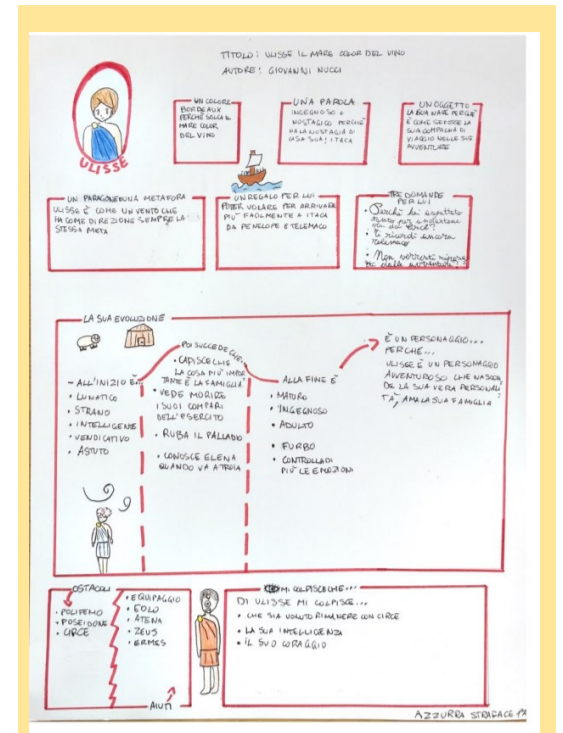 TITOLO: ULISSE IL MARE COLOR DEL VINO
AUTORE: GIOVANNI NUCCI
ULISSE
UN COLORE
BORDEAUX
PERCHÈ SOLCA IL
MARE COLOR
DEL VINO
UNA PAROLA
INGEGNOSO e
NOSTAGICO PERCHÈ
HA LA NOSTAGIA DI
CASA SUA: ITACA
UN OGGETTO
LA SUA NAVE PERCHÈ
È COME SE FOSSE LA
SUA COMPAGNA DI
VIAGGIO NELLE SUE
AVVENTURE
UN PARAGONE O UNA METAFORA
ULISSE È COME UN VENTO CHE
HA COME DIREZIONE SEMPRE LA
STESSA META
UN REGALO PER LUI
POTER VOLARE PER ARRIVARE
PIÙ FACILMENTE A ITACA
DA PENELOPE E TELEMACO
TRE DOMANDE
PER LUI
• Perché hai aspettato
tanto per andartene
da Circe?
• Ti ricordi ancora
Telemaco
• Non vorresti
dalle avventure?
LA SUA EVOLUZIONE
- ALL'INIZIO È...
• LUNATICO
• STRANO
• INTELLIGENE
• VENDICATIVO
• ASTUTO
POI SUCCEDE CHE...
• CAPISCE CHE
LA COSA PIÙ IMPOR
TANTE È LA FAMIGLIA
• VEDE MORIRE
I SUOI COMPARI
DELL'ESERCITO
• RUBA IL PALLADIO
• CONOSCE ELENA
QUANDO VA A TROIA
ALLA FINE È
• MATURO
• INGEGNOSO
• ADULTO
• FURBO
• CONTROLLA DI
PIÙ LE EMOZIONI
È UN PERSONAGGIO...
PERCHÈ...
ULISSE È UN PERSONAGGIO
AVVENTUROSO CHE NASCON
DE LA SUA VERA PERSONALI
TÀ, AMA LA SUA FAMIGLIA
OSTACOLI
• POLIFEMO
• POSEIDONE
• CIRCE
• EQUIPAGGIO
• EOLO
• ATENA
• ZEUS
• ERMES
AIUTI
MI COLPISCE CHE...
DI ULISSE MI COLPISCE...
• CHE SIA VOLUTO RIMANERE CON CIRCE
• LA SUA INTELLIGENZA
• IL SUO CORAGGIO
AZZURRA STRAFACE 1ªA